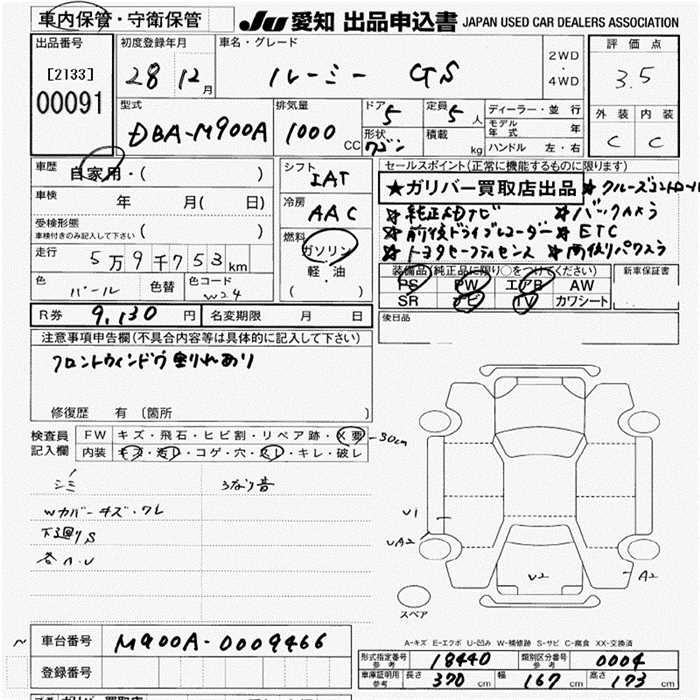 車内保管・守衛保管
JU 愛知 出品申込書 JAPAN USED CAR DEALERS ASSOCIATION
出品番号
[2133]
00091
初度登録年月
28 12月
車名・グレード
ルーミー GS
2WD
・
4WD
評価点
3.5
外装 内装
C C
型式
DBA-M900A
排気量
1000 CC
ドア
5
形状
ワゴン
定員
5人
積載
kg
ディーラー・並行
モデル年式 年
ハンドル 左・右
車歴
自家用・( )
車検
年 月( 日)
受検形態
車検付きのみ記入して下さい
( )
走行
5万9千753km
色
パール
色替
色コード
W24
シフト
IAT
冷房
AAC
燃料
ガソリン
軽・油
( )
セールスポイント(正常に機能するものに限ります)
★ガリバー買取店出品
☆クルーズコントロール
☆純正メモナビ ☆バックカメラ
☆前後ドライブレコーダー ☆ETC
☆トヨタセーフティセンス ☆両側パワスラ
装備品(純正品に限り○をつけてください)
PS PW エアB AW
SR ナビ TV カワシート
新車保証書
後日品
R券 9,130円
名変期限 月 日
注意事項申告欄(不具合内容等は具体的に記入して下さい)
フロントウィンドウ割れあり
修復歴 有〔箇所 〕
検査員
記入欄
FW キズ・飛石・ヒビ割・リペア跡・X要 -30cm
内装 キズ・汚レ・コゲ・穴・スレ・キレ・破レ
シミ うなり音
Wカバーキズ・ワレ
下廻りS
各A・U
U1
UA2
U2
A2
スペア
A-キズ E-エクボ U-凹み W-補修跡 S-サビ C-腐食 XX-交換済
車台番号 M900A-0009466
登録番号
形式指定番号
参考
18440
類別区分番号
参考
0004
車庫証明用
参考
長さ 370cm 幅 167cm 高さ 173cm
ガリバー買取店